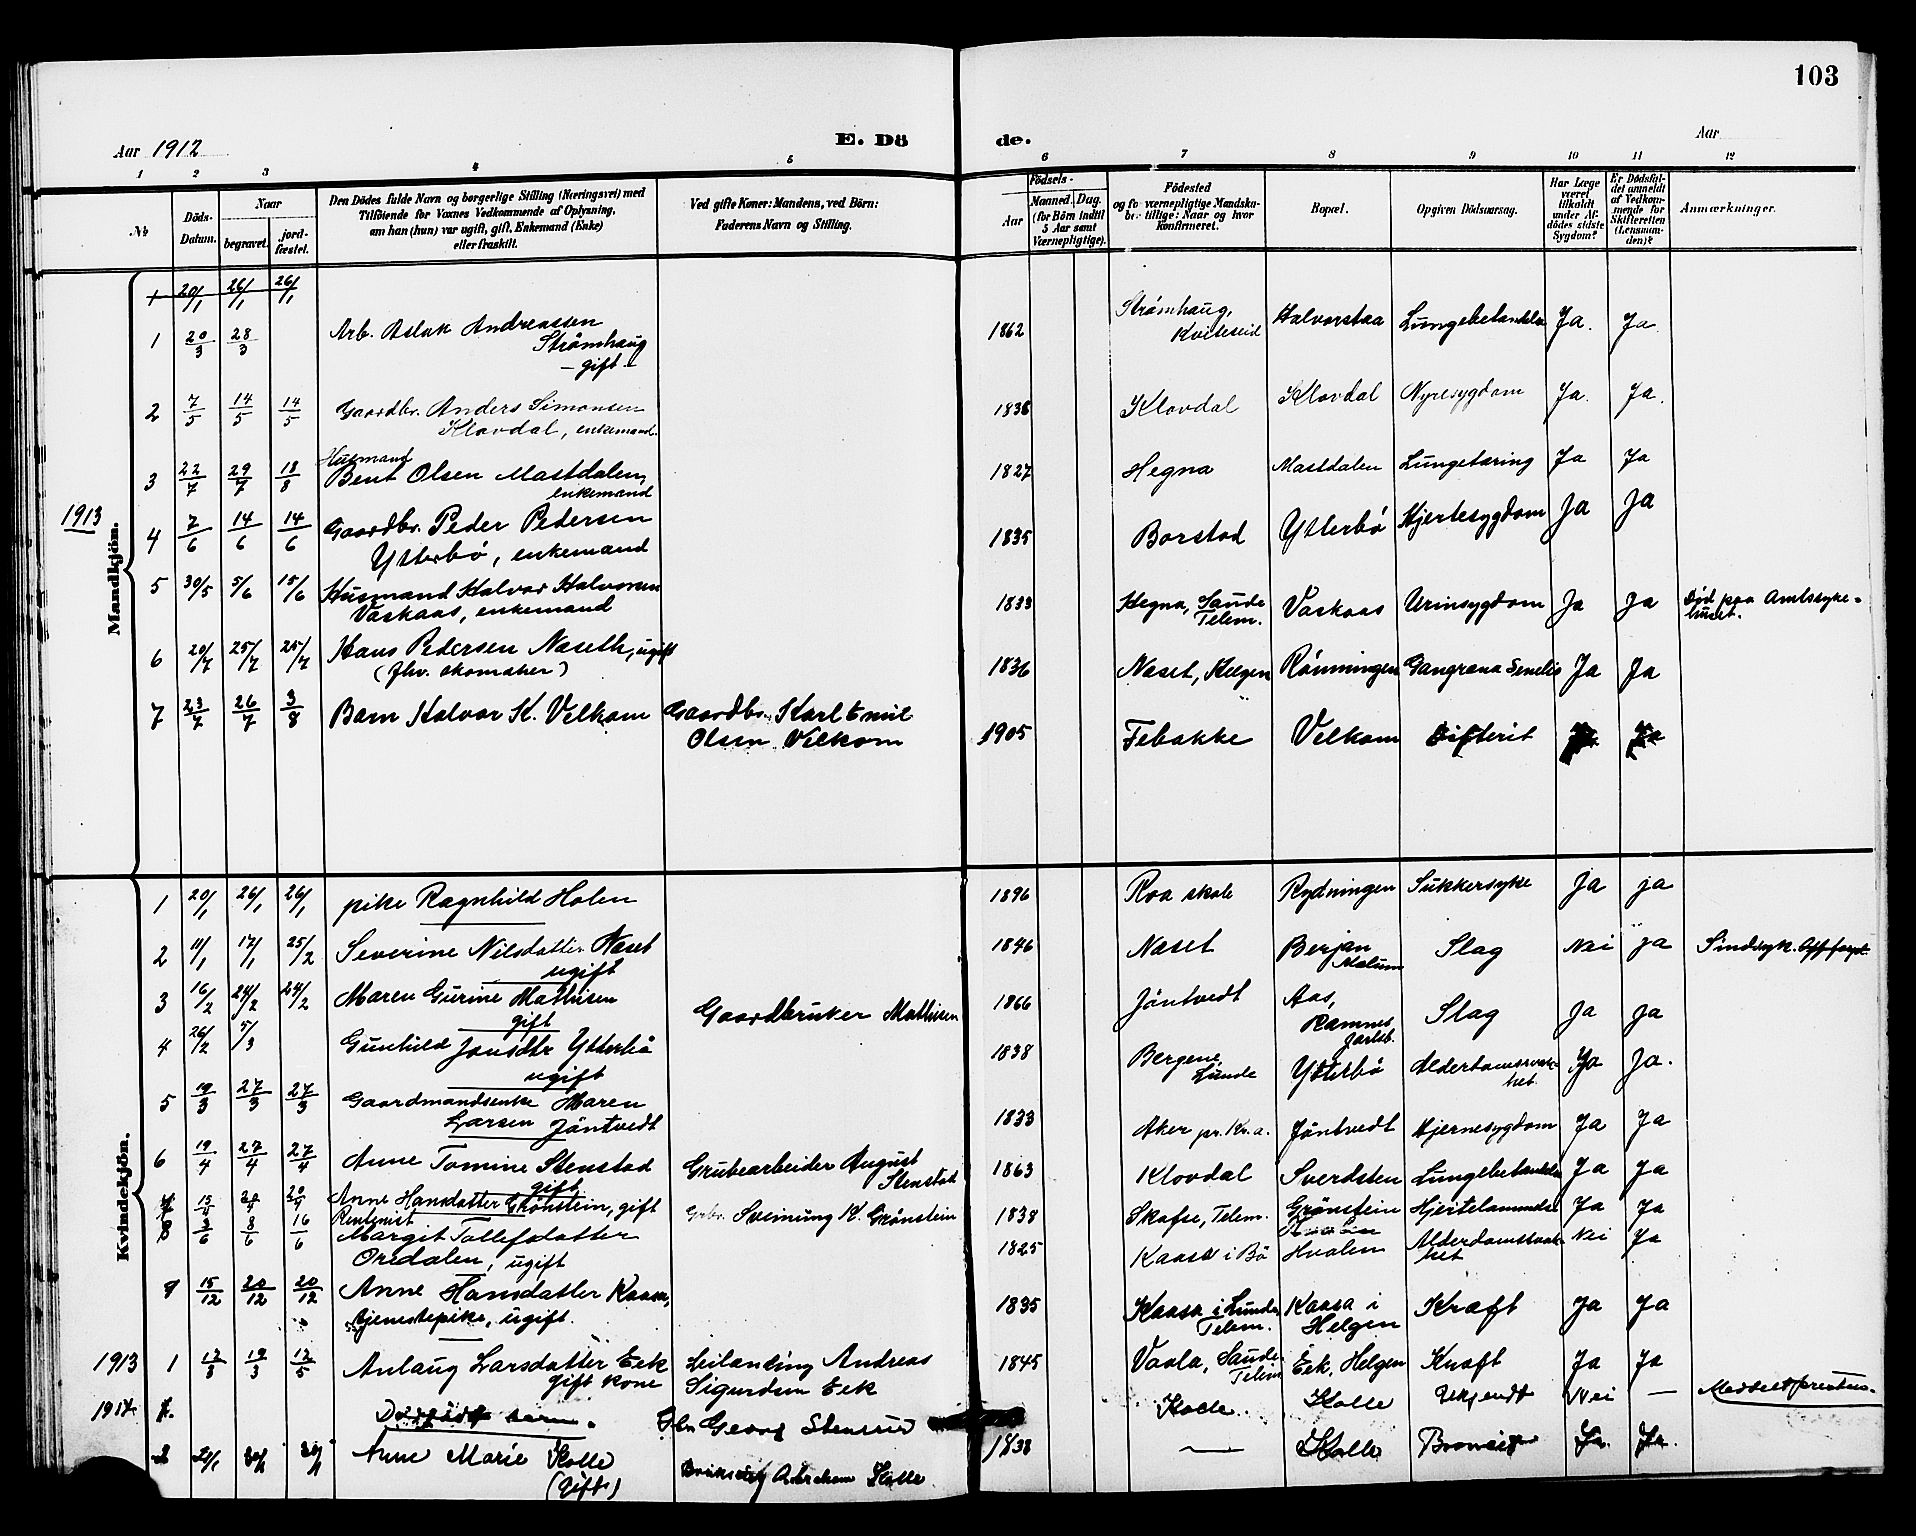 103
Aar 1912
E. Dö
de.
Aar
1 2 3 4 5 6 7 8 9 10 11 12
№
Döds-Datum.
Naar
begravet.
jord-fæstet.
Den Dödes fulde Navn og borgerlige Stilling (Næringsvei) med
Tilföiende for Voxnes Vedkommende af Oplysning,
om han (hun) var ugift, gift, Enkemand (Enke)
eller fraskilt.
Ved gifte Koner: Mandens, ved Börn:
Faderens Navn og Stilling.
Födsels-
Aar
Maaned. Dag.
(for Börn indtil
5 Aar samt
Værnepligtige).
Födested
og for værnepligtige Mandska-
br. tillige: Naar og hvor
konfirmeret.
Bopæl.
Opgiven Dödsaarsag.
Har Læge
været
tilkaldt
under Af-
dödes sidste
Sygdom?
Er Dödsfal-
det anmeldt
af Vedkom-
mende for
Skifteretten
(Lensman-
den)?
Anmærkninger.
Mandkjön.
1 20/1 26/1 26/1
1 20/3 28/3 Arb. Aslak Andreassen Strømhaug - gift - 1862 Strømhaug, Kviteseid Halvorstaa Lungebetændelse Ja. Ja.
2 7/5 14/5 14/5 Gaardbr. Anders Simonsen Klovdal, enkemand. 1836 Klovdal Klovdal Nyresygdom Ja. Ja.
3 22/7 29/7 18/8 Husmand Bent Olsen Mastdalen, enkemand 1827 Hegna Mastdalen Lungetæring Ja Ja
1913
4 7/6 14/6 14/6 Gaardbr. Peder Pedersen Ytterbø, enkemand 1835 Borstad Ytterbø Hjertesygdom Ja Ja
5 30/5 5/6 15/6 Husmand Halvor Halvorsen Vaskaas, enkemand 1833 Hegna, Saude Telem. Vaskaas Urinsygdom Ja Ja Död paa Amtssyke-huset.
6 20/7 25/7 25/7 Hans Pedersen Naseth, ugift (fhv. skomaker) 1836 Naset, Helgen Rönningen Gangræna Senilis Ja Ja
7 23/7 26/7 3/8 Barn Halvor K. Velkom Gaardbr. Karl Emil Olsen Velkom 1905 Febakke Velkom Difterit Ja
Kvindekjön.
1 20/1 26/1 26/1 pike Ragnhild Holen 1896 Roa skole Rydningen Sukkersyke ja ja
2 11/1 17/1 25/2 Severine Nilsdatter Naset ugift 1846 Naset Berjan Mælum Slag Nei ja Sindsyk.
3 16/2 24/2 24/2 Maren Gurine Mathisen gift Gaardbruker Mathisen 1866 Jöntvedt Aas, Ramnes Jarlsb. Slag Ja Ja
4 26/2 5/3 Gunhild Jonsdtr Ytterbö ugift 1838 Bergene, Lunde Ytterbö Alderdomssvak-het. Ja Ja.
5 19/3 27/3 27/3 Gaardmandsenke Maren Larsen Jöntvedt 1833 Aker pr. Kr.a. Jöntvedt Hjernesygdom Ja Ja
6 19/4 27/4 27/4 Anne Tomine Stenstad gift Grubearbeider August Stenstad 1863 Klovdal Sverdsten Lungebetændelse Ja Ja
15/4 20/4 20/4 Anne Hansdatter Grönstein, gift Grbr. Sveinung K. Grönstein 1838 Skafse, Telem. Grönstein Hjertelammelse Ja Ja
8 3/6 8/6 16/6 Rentenist Margit Tollefsdatter Oredalen, ugift 1825 Kaasa i Bö Hvalen Alderdomssvak-het Nei Ja
9 15/12 20/12 20/12 Anne Hansdatter Kaasa, tjenestepike, ugift. 1835 Kaasa i Lunde, Telem. Kaasa i Helgen Kræft Ja Ja
1913 1 12/3 19/3 12/5 Anlaug Larsdatter Eek gift kone Leilænding Andreas Sigurdsen Eek 1845 Vaala, Saude Telem Eek, Helgen Kræft Ja Ja
1914 1. Dödfödt barn. Georg Stensrud Kolle. Kolle Ukjendt Nei —
2 Anne Marie Kolle (Gift) Abraham Kolle 1838 — Kolle Ja. Ja.